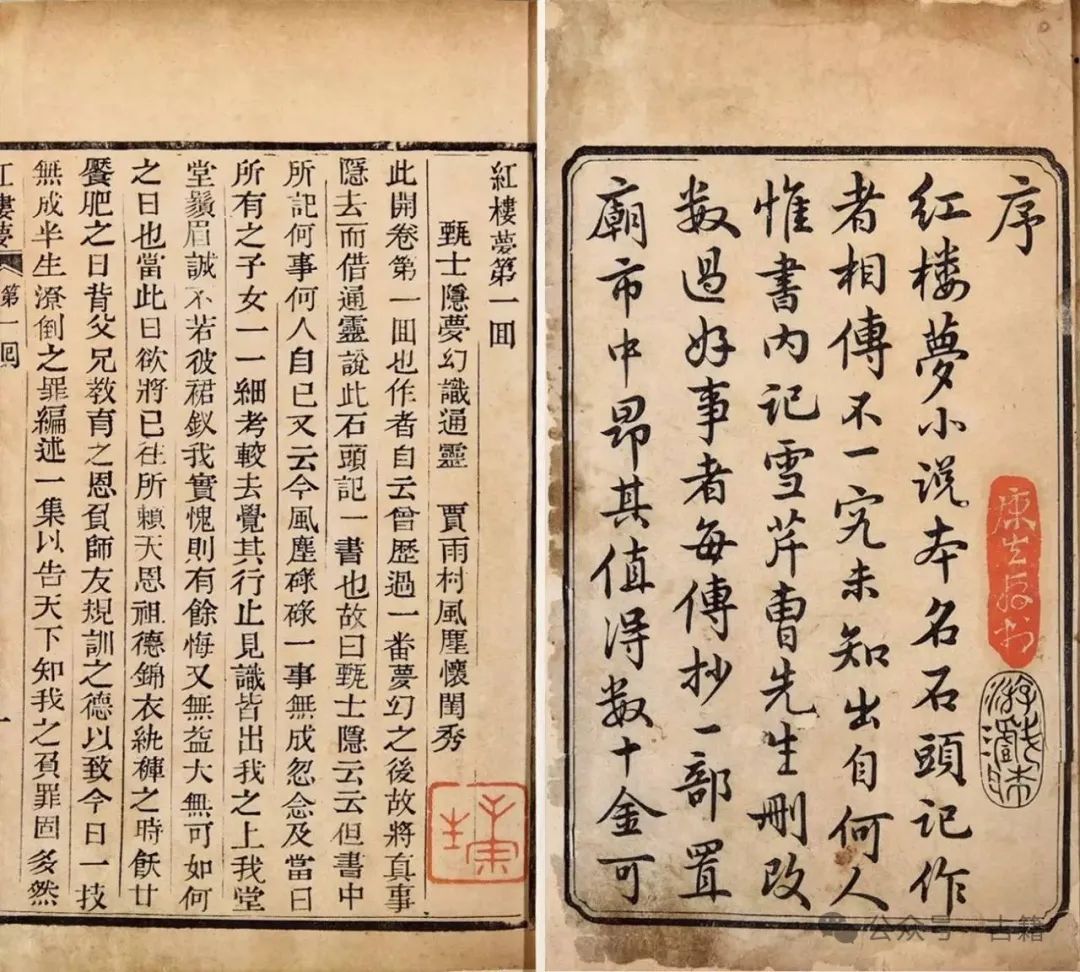 序
红楼夢小说本名石頭记作
者相傳不一究未知出自何人
惟書内记雪芹曹先生刪改
数過好事者每傳抄一部置
廟市中昂其值得数十金可
康生
游戏
紅樓夢第一囬
甄士隱夢幻識通靈　賈雨村風塵懷閨秀
此開卷第一囬也作者自云曾歷過一番夢幻之後故將真事
隱去而借通靈說此石頭記一書也故曰甄士隱云云但書中
所記何事何人自己又云今風塵碌碌一事無成忽念及當日
所有之子女一一細考較去覺其行止見識皆出我之上我堂
堂鬚眉誠不若彼裙釵我實愧則有餘悔又無益大無可如何
之日也當此日欲將已往所賴天恩祖德錦衣紈褲之時飫甘
饜肥之日背父兄教育之恩負師友規訓之德以致今日一技
無成半生潦倒之罪編述一集以告天下知我之負罪固多然
紅樓夢　第一囬　一
公众号·古籍